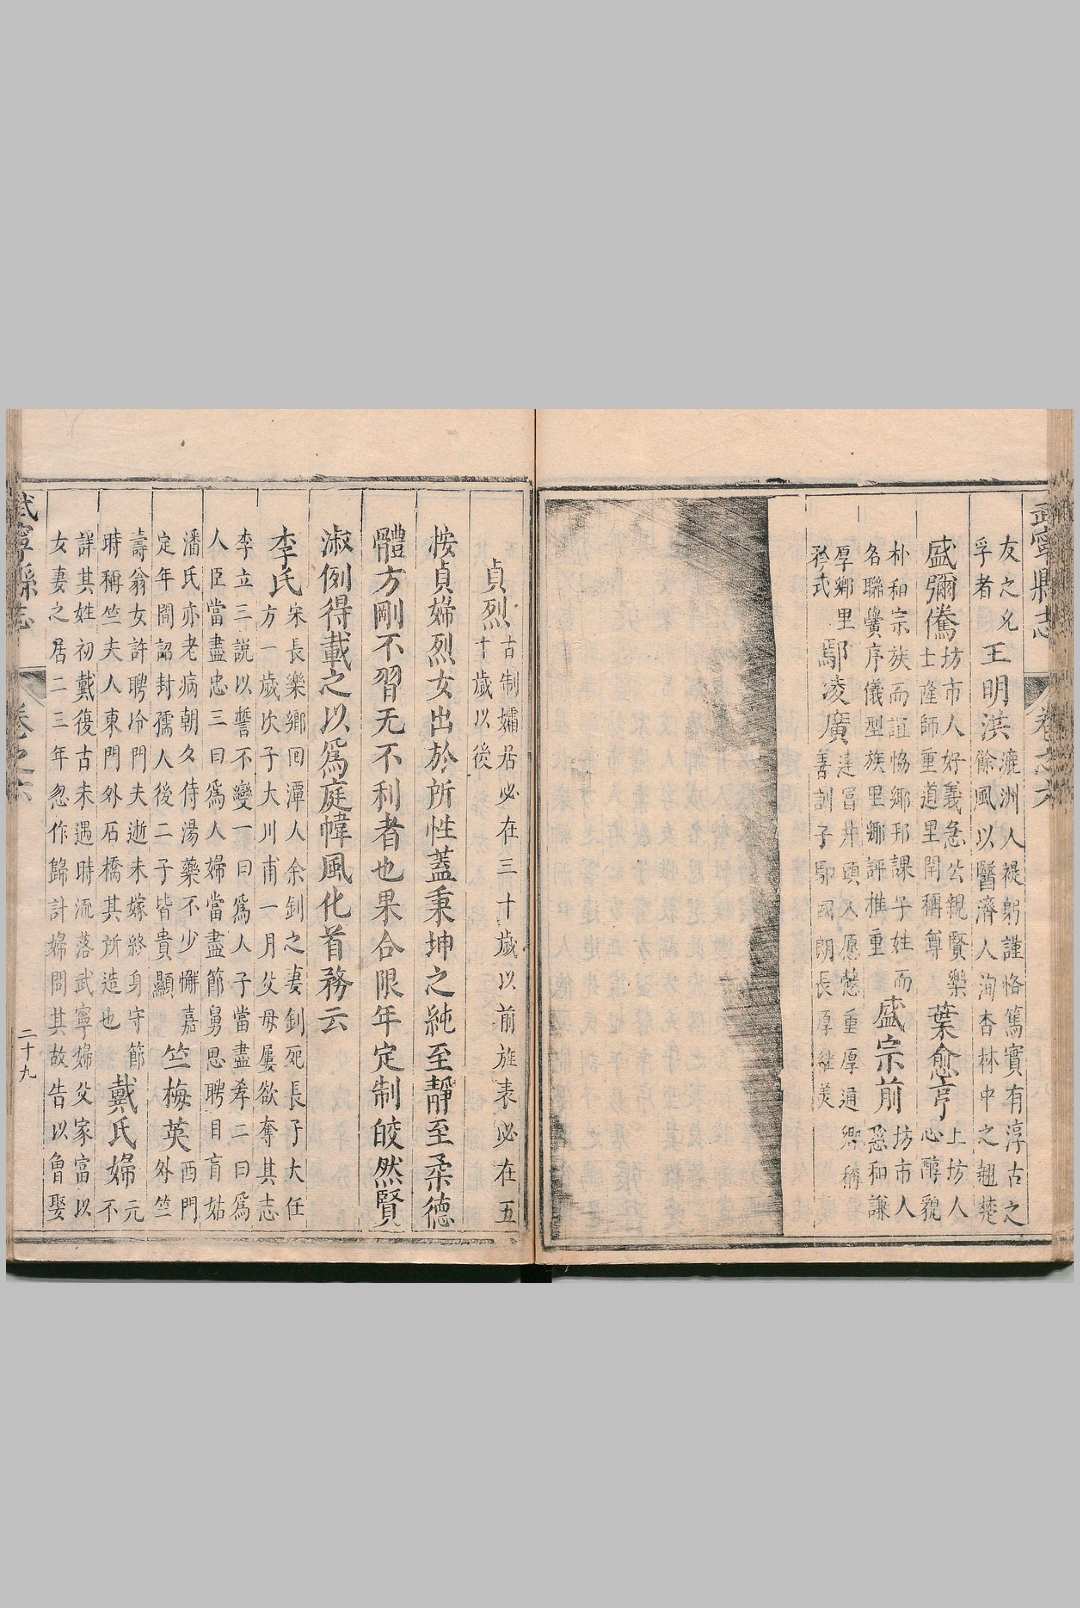 武寧縣志
卷之六
友之兄
孚者
王明淇
漉洲人褆躬謹恪篤實有淳古之
餘風以醫濟人洵杏林中之翹楚
盛彌僑
坊市人好義急公親賢樂
士產師重道里閈稱尊
葉愈亨
上坊人
心醇貌
朴和宗族而誼恊鄉邦課子姓而
名聯黌序儀型族里鄉評推重
盛宗前
坊市人
愿和謙
厚鄉里
矜式
鄢凌廣
善訓子鄢國朗長厚継美
貞烈
古制孀居必在三十歲以前旌表必在五
十歲以後
按貞婦烈女出於所性蓋秉坤之純至靜至柔德
體方剛不習无不利者也果合限年定制皎然賢
淑例得載之以爲庭幃風化首務云
李氏
宋長樂鄉回潭人余釗之妻釗死長子大任
方一歲次子大川甫一月父母屢欲奪其志
李立三說以誓不變一曰爲人子當盡孝二曰爲
人臣當盡忠三曰爲人婦當盡節舅思聘目盲姑
潘氏亦老病朝夕侍湯藥不少懈嘉
定年間詔封孺人後二子皆貴顯
竺梅英
西門
外竺
壽翁女許聘冷門夫逝未嫁終身守節
時稱竺夫人東門外石橋其所造也
戴氏婦
元
不
詳其姓初戴復古未遇時流落武寧婦父家富以
女妻之居二三年忽作歸計婦問其故告以曾娶
武寧縣志
卷之六
二十九